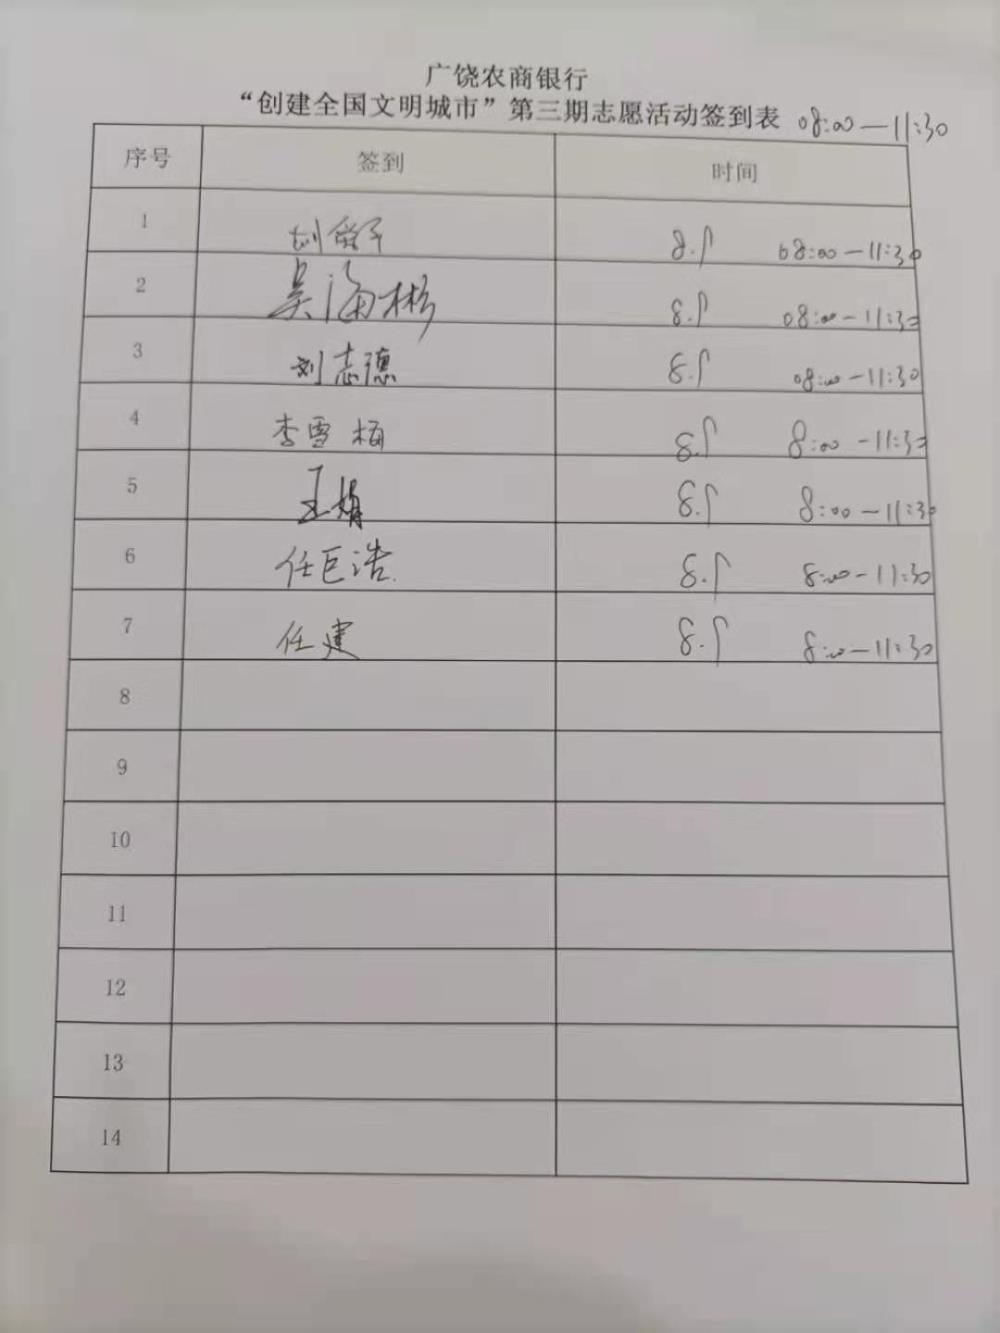 广饶农商银行
“创建全国文明城市”第三期志愿活动签到表 08:00—11:30
序号 签到 时间
1 刘 08:00—11:30
2 吴海彬 08:00—11:30
3 刘志德 08:00—11:30
4 李雪梅 8:00—11:30
5 王娟 8:00—11:30
6 任巨浩 8:00—11:30
7 任建 8:00—11:30
8
9
10
11
12
13
14